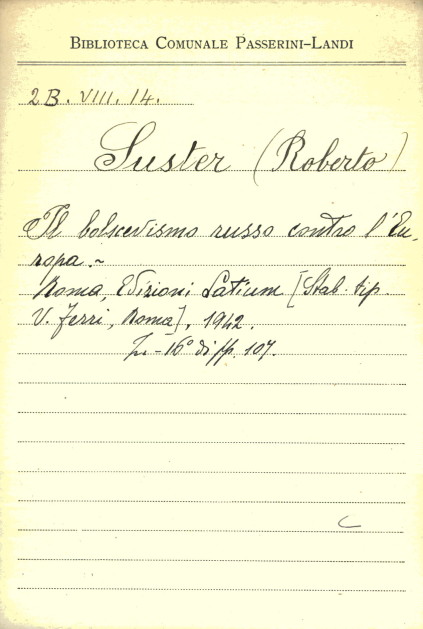 BIBLIOTECA COMUNALE PASSERINI-LANDI
2B. VIII. 14.
Suster (Roberto)
Il bolscevismo russo contro l'Eu-
ropa.~
Roma, Edizioni Latium [Stab. tip.
V. Ferri, Roma], 1942.
in-16° di pp. 107.